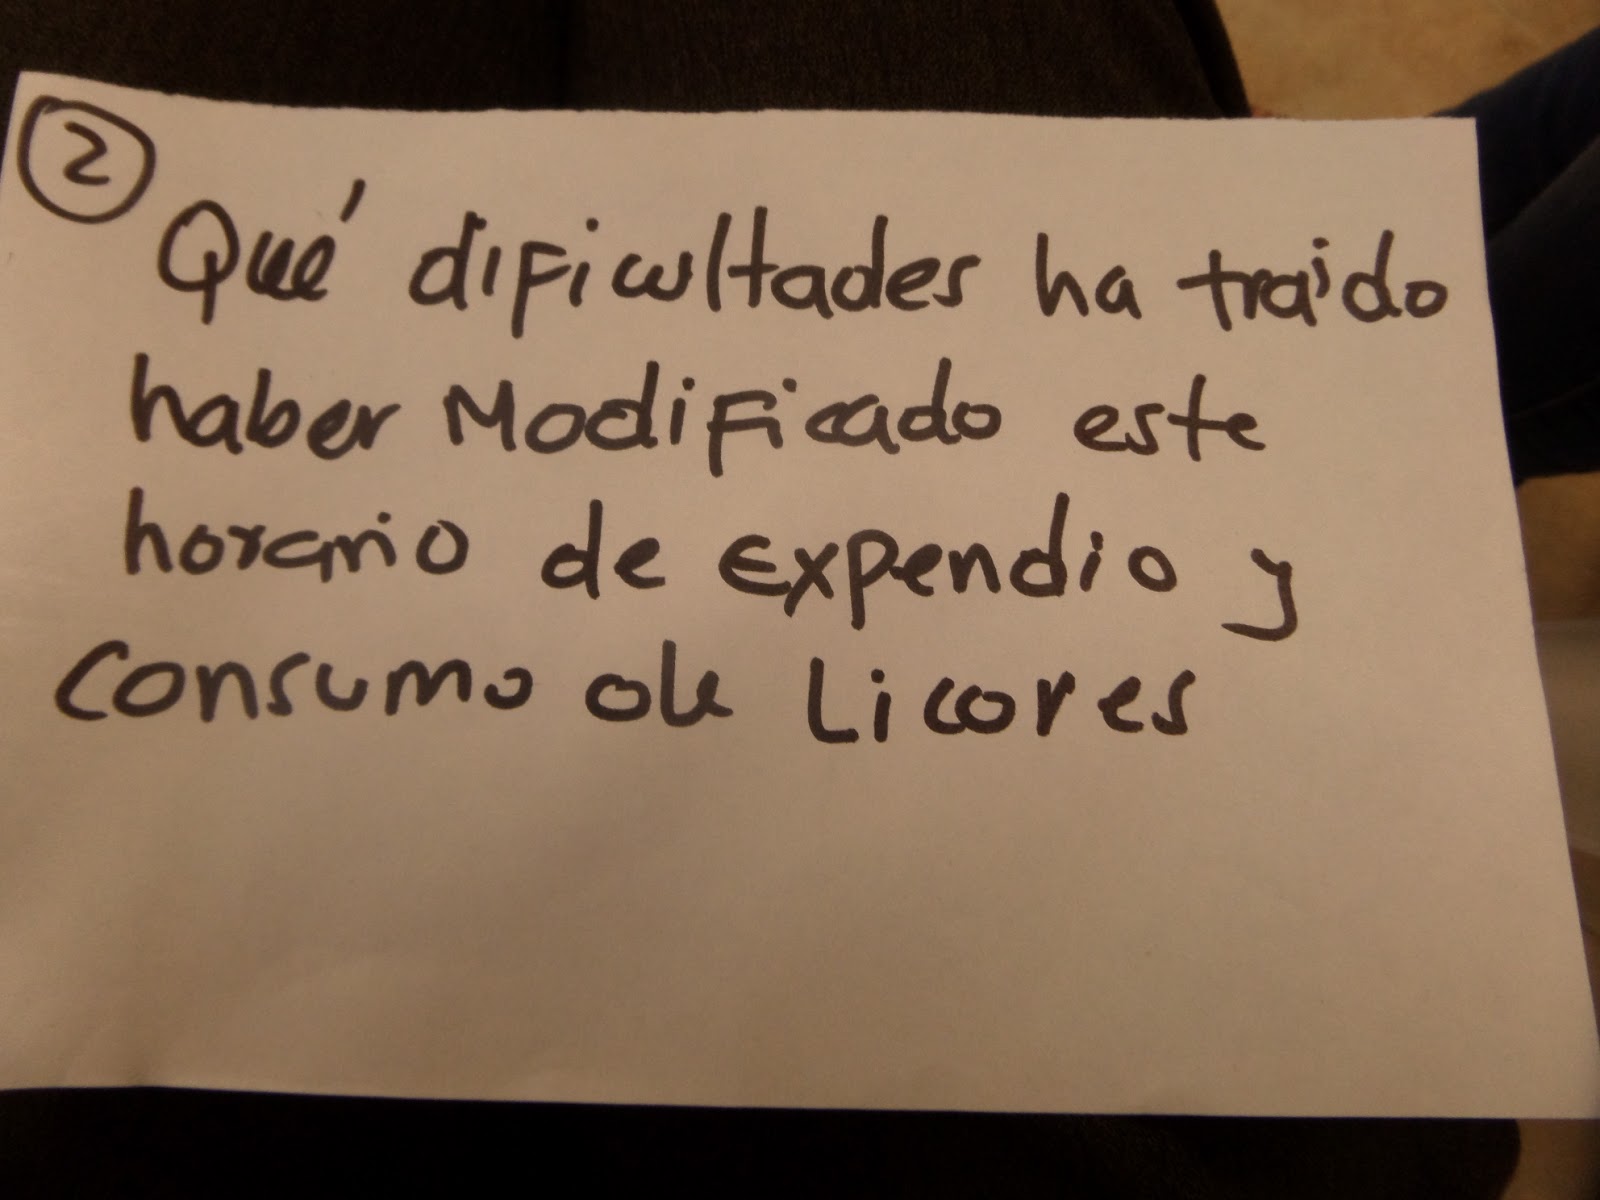 2
Qué dificultades ha traido
haber Modificado este
horario de Expendio y
Consumo de Licores